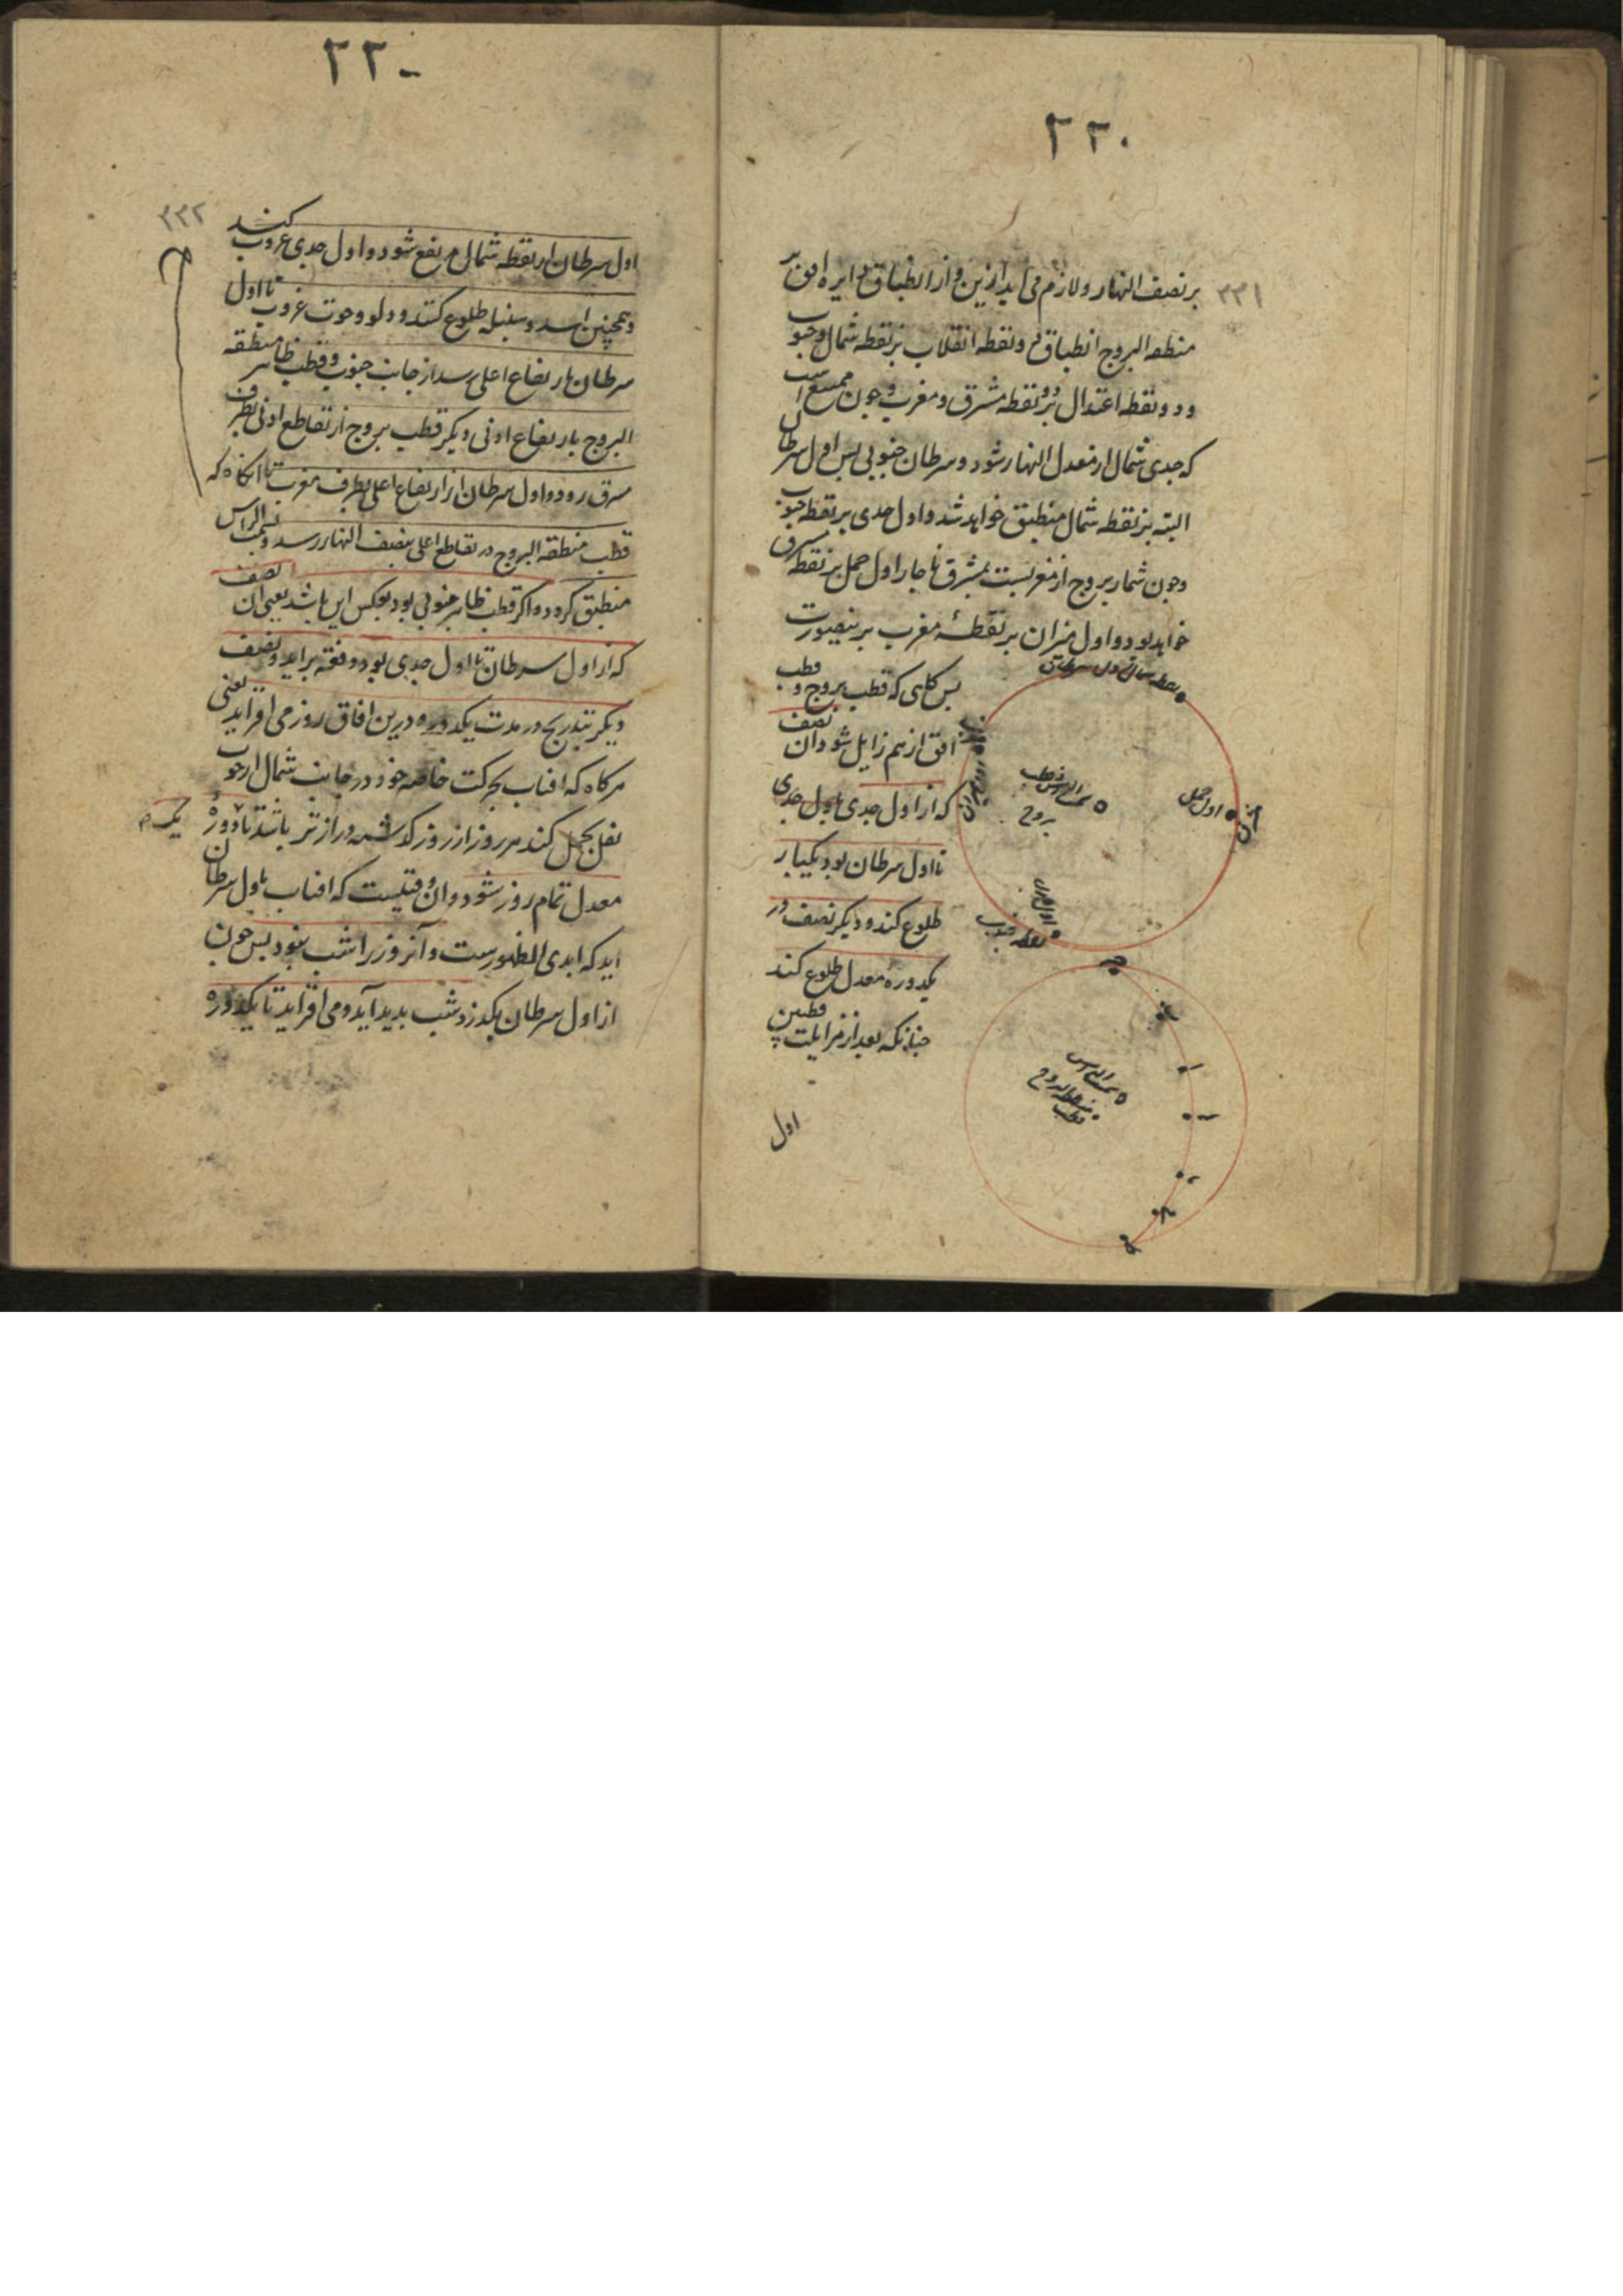 ۲۲۰
۲۲۱
بر نصف النهار و لازم می اید ازین و از انطباق دایره افق بر
منطقه البروج انطباق دو نقطه انقلاب بر نقطه شمال و جنوب
و دو نقطه اعتدال بر دو نقطه مشرق و مغرب و چون ممتنع است
که جدی شمال از معدل النهار شود و سرطان جنوبی پس اول سرطان
البته بر نقطه شمال منطبق خواهد شد و اول جدی بر نقطه جنوب
و چون شمار بروج از مغربست بمشرق ناچار اول حمل بر نقطه مشرق
خواهد بود و اول میزان بر نقطهٔ مغرب برینصورت
پس گاهی که قطب بروج و قطب
افق از هم زایل شود ان نصف
که از اول جدی باول جدی
تا اول سرطان بود یکبار
طلوع کند و دیگر نصف در
یکدوره معدل طلوع کند
چنانکه بعد از مزایلت قطبین
اول
نقطه شمال اول سرطان
اول حمل
سمت الراس قطب
بروج
نقطه جنوب
سمت الراس
قطب
۲۲۰
۲۲۲
اول سرطان از نقطه شمال مرتفع شود و اول جدی غروب کند
و همچنین اسد و سنبله طلوع کنند و دلو و حوت غروب تا اول
سرطان بارتفاع اعلی رسد از جانب جنوب و قطب ظاهر منطقه
البروج بارتفاع ادنی دیگر قطب بروج از تقاطع ادنی بطرف
مشرق رود و اول سرطان از ارتفاع اعلی بطرف مغرب تا انگاه که
قطب منطقه البروج در تقاطع اعلی بنصف النهار رسد و بسمت الراس
منطبق گردد و اگر قطب ظاهر جنوبی بود بعکس این باشد یعنی ان نصف
که از اول سرطان تا اول جدی بود دفعه براید و نصف
دیگر بتدریج در مدت یکدوره و درین افاق روز می افزاید یعنی
هرگاه که افتاب بحرکت خاصه خود در جانب شمال از حوت
نقل بحمل کند هر روز از روز گذشته درازتر باشد تا دورهٔ
معدل تمام روز شود و ان وقتیست که افتاب باول سرطان
اید که ابدی الظهورست و آنروز را شب نبود پس چون
از اول سرطان بگذرد شب بدید آید و می افزاید تا یکدوره